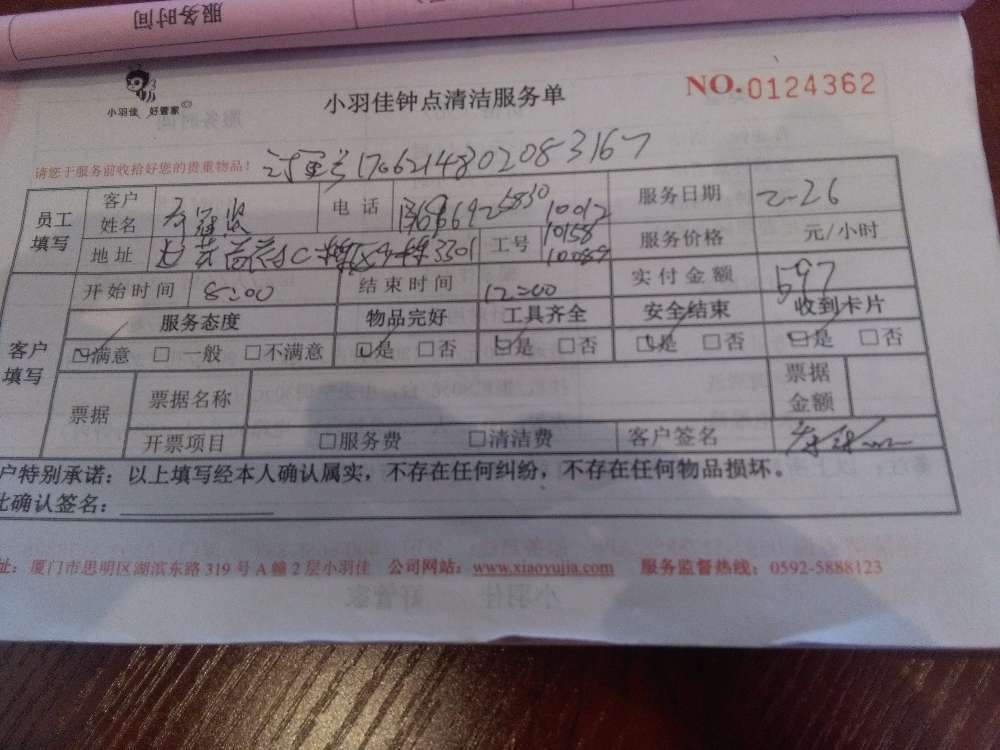 服务时间
小羽佳 好管家
小羽佳钟点清洁服务单
NO.0124362
请您于服务前收拾好您的贵重物品!
订单号1706214802083167
员工填写 客户姓名 电话 服务日期 2-26
地址 3301 工号 10012 10158 10089 服务价格 元/小时
开始时间 8:00 结束时间 12:00 实付金额 597
客户填写 服务态度 物品完好 工具齐全 安全结束 收到卡片
☑满意 □一般 □不满意 ☑是 □否 ☑是 □否 ☑是 □否 ☑是 □否
票据 票据名称 票据金额
开票项目 □服务费 □清洁费 客户签名
户特别承诺：以上填写经本人确认属实，不存在任何纠纷，不存在任何物品损坏。
此确认签名：
址：厦门市思明区湖滨东路319号A幢2层小羽佳 公司网站：www.xiaoyujia.com 服务监督热线：0592-5888123